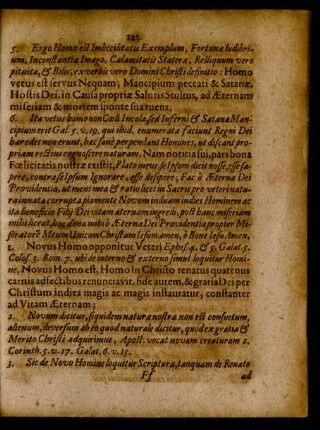 223.
5. Ergo Homo est Imbecilitatis Exemplum, Fortunæ ludibri-
um, Inconstantiæ Imago, Calamitatis Statera, Relliquum vero
pituita, & Bilis; ex verbis vero Domini Christi definitio: Homo
vetus est servus Nequam, Mancipium peccati & Satanæ,
Hostis Dei, in Causa propriæ Salutis Stultus, ad Æternam
miseriam & mortem sponte sua ruens;
6. Ita vetus homo non Cœli Incola, sed Inferni & Satanæ Man-
cipium erit Gal. 5. v. 19. qui ibid. enumerata faciunt Regni Dei
hæredes non erunt, hæc sane perpendant Homines, ut discant pro-
priam rectius cognoscere naturam. Nam notitia sui, pars bona
Fœlicitatis nostræ existit, Plato meus, se Ipsum dicit nosse, esse sa-
pere, contra se Ipsum Ignorare, esse desipere; Fac ô Æterna Dei
Providentia, ut mens mea & ratio licet in Sacris pro veteri natu-
ra innata corrupta piamente Novum induam indies Hominem ac
ita beneficio Filij Dei vitam æternam ingredi, post hanc miseriam
mihi liceat, hoc dona mihi ô Æterna Dei Providentia propter Me-
diatorẽ Meum Unicum Christum Iesum amen, ô Bone Iesu Amen.
1. Novus Homo opponitur Veteri Ephes. 4. & 5. Galat. 5.
Colos. 3. Rom. 7. ubi de interno & externo simul loquitur Homi-
ne, Novus Homo est, Homo in Christo renatus quatenus
carnis adfectibus renunciavit, fide autem, & gratia Dei per
Christum indies magis ac magis instauratur, constanter
ad Vitam Æternam;
2. Novum dicitur, siquidem naturæ nostræ non est consuetum,
alienum, diversum ab eo quod naturale dicitur, quod ex gratia &
Merito Christi adquirimus, Apost. vocat novam creaturam 2.
Corinth. 5. v. 17. Galat. 6. v. 15.
3. Sic de Novo Homine loquitur Scriptura, tanquam de Renato
Ff ad